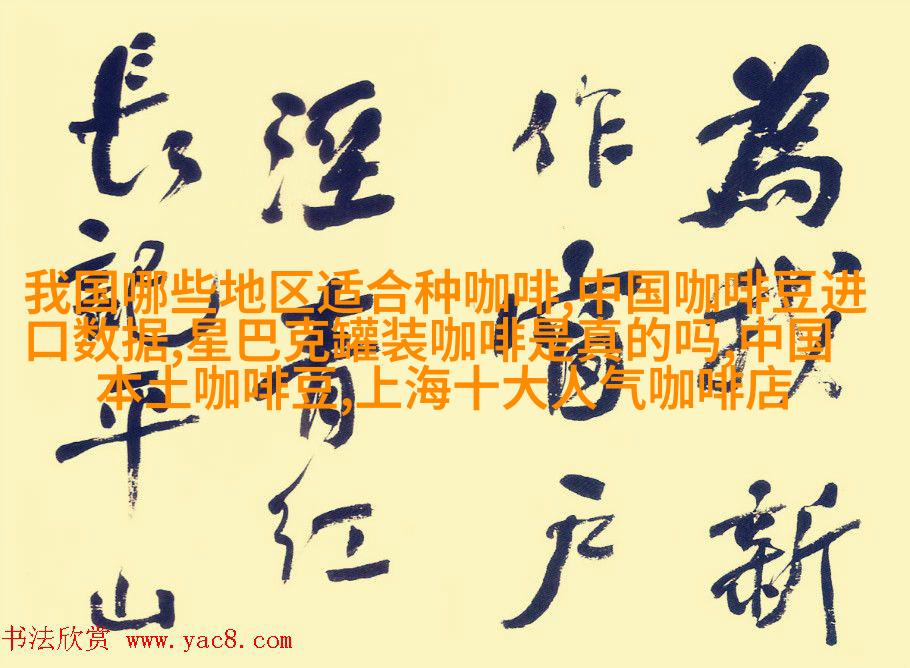 為我新
作窗户
溼青紅
長記平山
我国哪些地区适合种咖啡,中国咖啡豆进
口数据,星巴克罐装咖啡是真的吗,中国
本土咖啡豆,上海十大人气咖啡店
书法欣赏 www.yac8.com